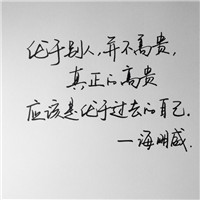 优于别人，并不高贵，
真正的高贵
应该是优于过去的自己.
—海明威.